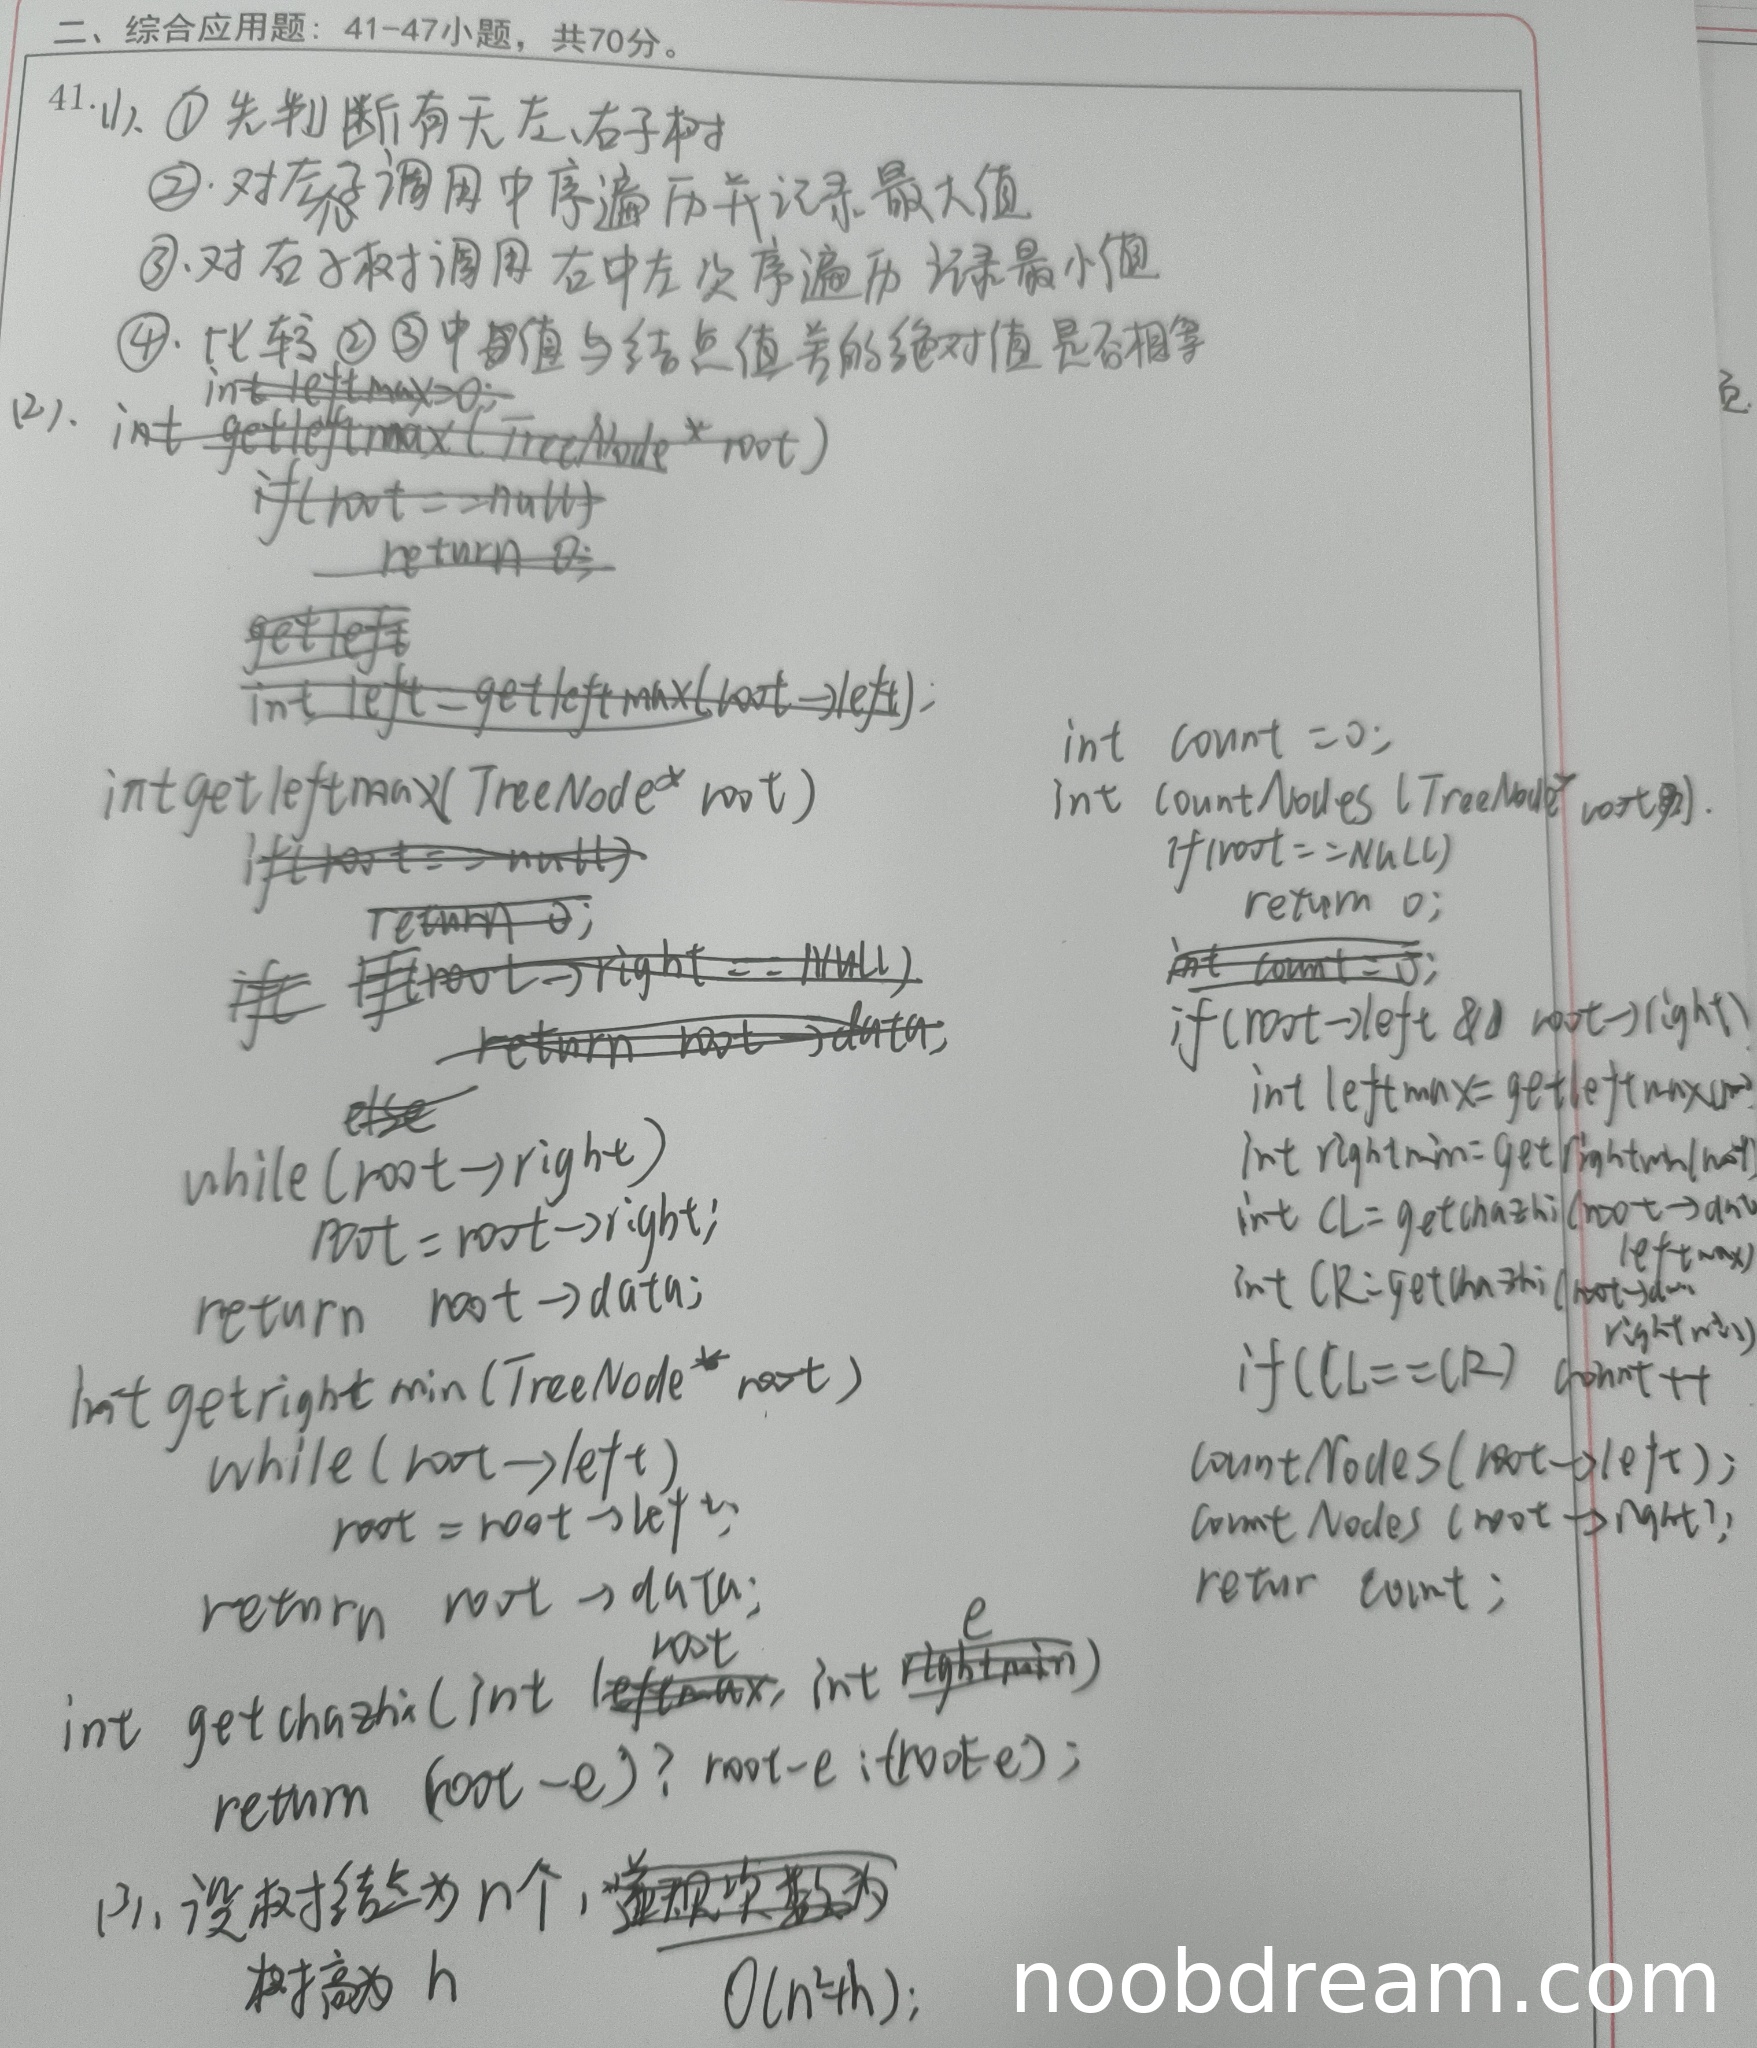 二、综合应用题：41-47小题，共70分。
41.(1). ①先判断有无左、右子树
②. 对左子树调用中序遍历并记录最大值
③. 对右子树调用右中左次序遍历 记录最小值
④. 比较②③中值与结点值差的绝对值是否相等
int leftmax=0;
(2). int getleftmax(TreeNode* root)
if(root==null)
return 0;
getleft
int left=getleftmax(root->left);
int getleftmax(TreeNode* root)
if(root==null)
return 0;
if if(root->right==NULL)
return root->data;
else
while(root->right)
root=root->right;
return root->data;
int getrightmin(TreeNode* root)
while(root->left)
root=root->left;
return root->data;
root e
int getchazhi(int leftmax, int rightmin)
return (root-e)? root-e:-(root-e);
(3). 设树结点为n个，
树高为 h O(n²+h);
int count=0;
int countNodes(TreeNode* root).
if(root==NULL)
return 0;
int count=0;
if(root->left && root->right)
int leftmax=getleftmax(root)
int rightmin=getrightmin(root)
int CL=getchazhi(root->data
leftmax)
int CR=getchazhi(root->data
rightmin)
if(CL==CR) count++
countNodes(root->left);
countNodes(root->right);
retur count;
noobdream.com